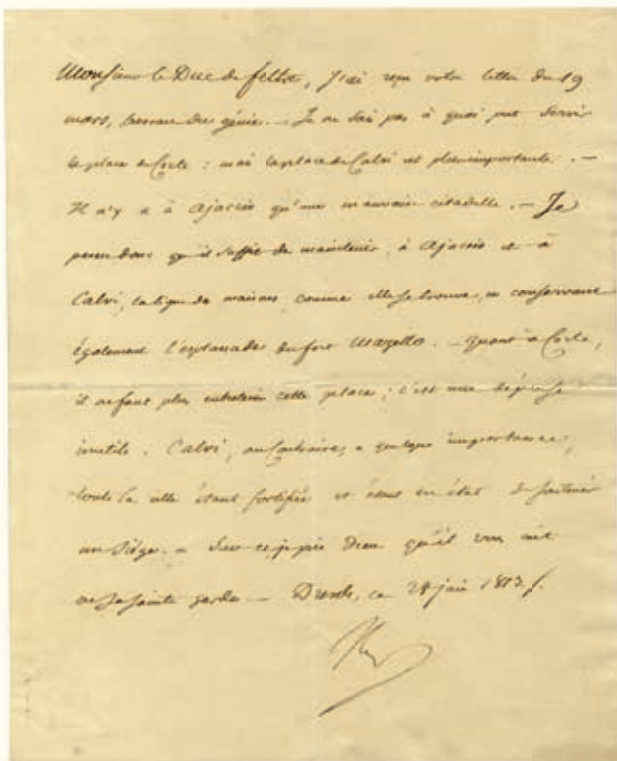 Monsieur le Duc de feltre, J'ai reçu votre lettre du 19
mars, bureau du génie. — Je ne sais pas à quoi peut servir
la place de Corte : mais la place de Calvi est plus importante. —
Il n'y a à Ajaccio qu'une mauvaise citadelle. — Je
pense donc qu'il suffit de maintenir, à Ajaccio et à
Calvi, la ligne de maisons comme elle se trouve, en conservant
également l'esplanade du fort Mozello. — quant à Corte,
il ne faut plus entretenir cette place ; c'est une dépense
inutile. Calvi, au Contraire, a quelque importance,
toute la ville étant fortifiée et étant en état de soutenir
un siège. — Sur ce, je prie Dieu qu'il vous ait
en sa sainte garde — Dresde, ce 28 juin 1813 /.